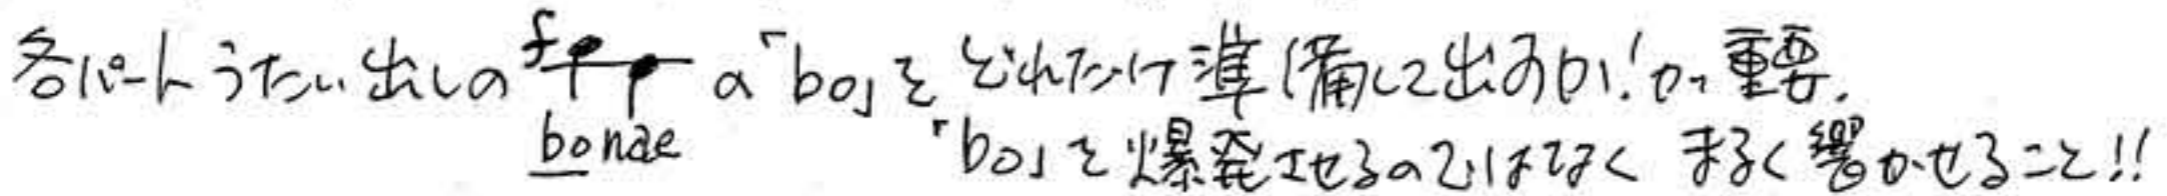 各パートうたい出しの f の「bo」を どれだけ準備して出るか!が重要.
bonae 「bo」を爆発させるのではなく まるく響かせること!!